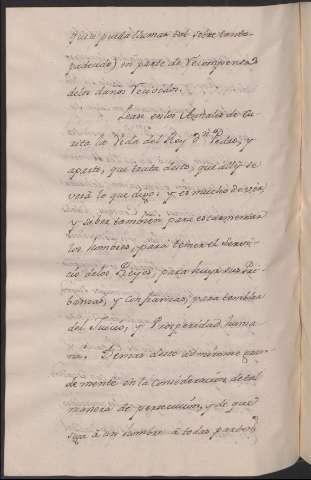 que se pueda llamar del sobre tanto
padecido) en parte de recompensa
de los daños recividos.
Lean en los Annales de Cu-
rita la Vida del Rey Dn. Pedro, y
aparte, que tanta cito, que alli se
verá lo que digo, y es mucho de ver,
y saber tambien para escarmentar
los hombres, para temer el servi-
cio de los Reyes, para huyr sus Pri-
banzas, y confianzas, para temblar
del Juicio, y Prosperidad huma
na. Demas desto admirème gran-
demente en la consideracion de tal
manera de persecucion, y de que
siga à un hombre à todas partes